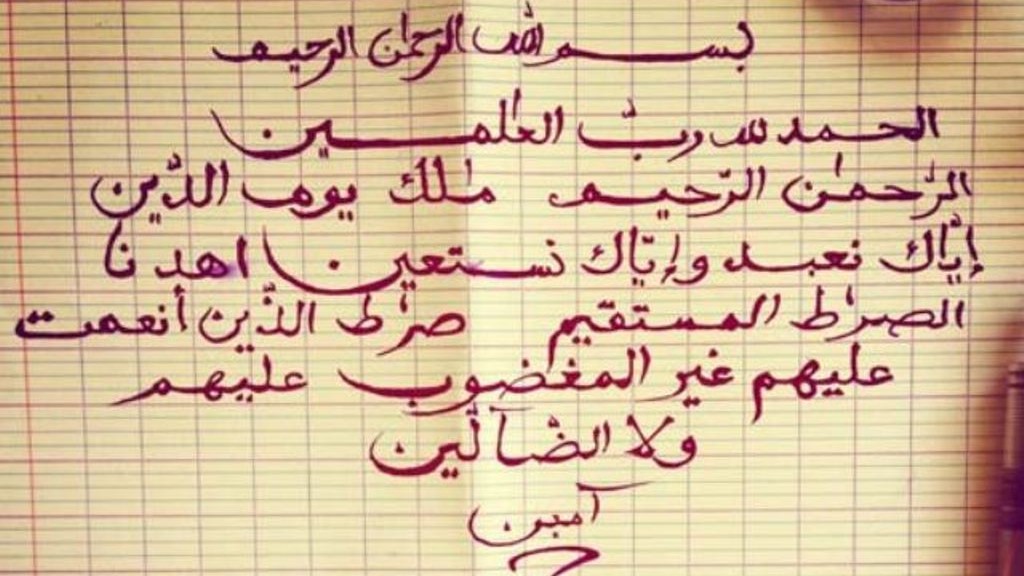 بسم الله الرحمٰن الرحيم
الحمد لله ربّ العٰلمين
الرّحمٰن الرّحيم مٰلك يوم الدّين
إيّاك نعبد وإيّاك نستعين اهدنا
الصرٰط المستقيم صرٰط الذّين أنعمت
عليهم غير المغضوب عليهم
ولا الضّآلّين
آمين